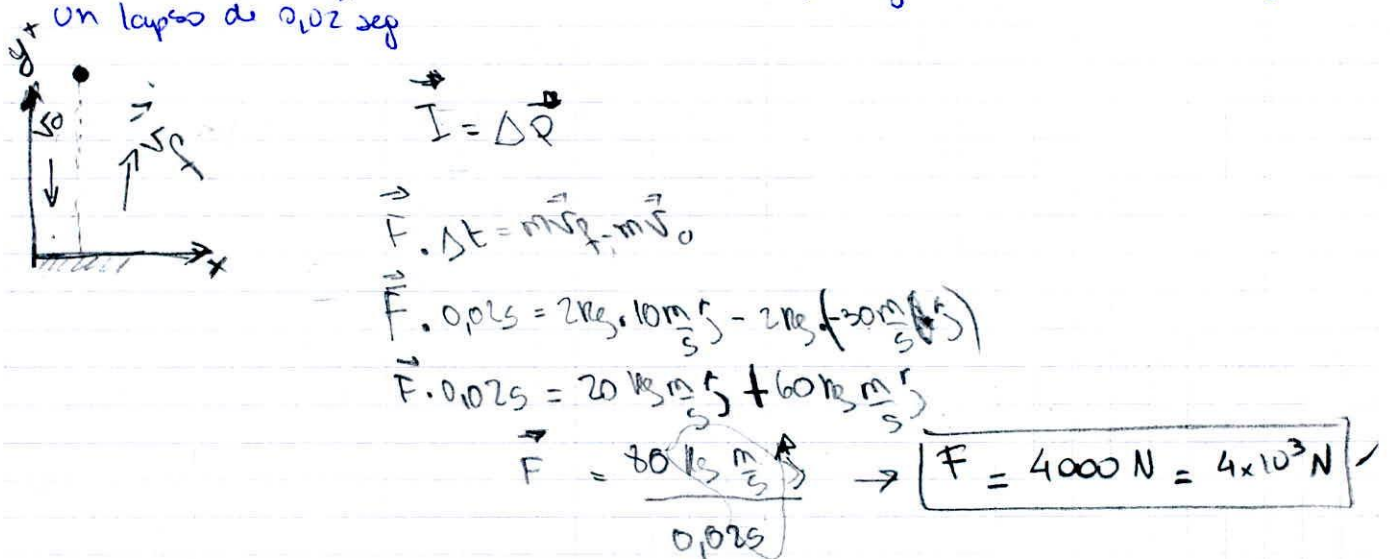 un lapso de 0,02 seg
y+
v⃗o
v⃗f
x
I⃗ = ΔP⃗
F⃗ . Δt = m v⃗f - m v⃗o
F⃗ . 0,02s = 2kg . 10 m/s ĵ - 2kg . (-30 m/s ĵ)
F⃗ . 0,02s = 20 kg m/s ĵ + 60 kg m/s ĵ
F⃗ = 80 kg m/s ĵ / 0,02s → F = 4000 N = 4x10³ N ✓